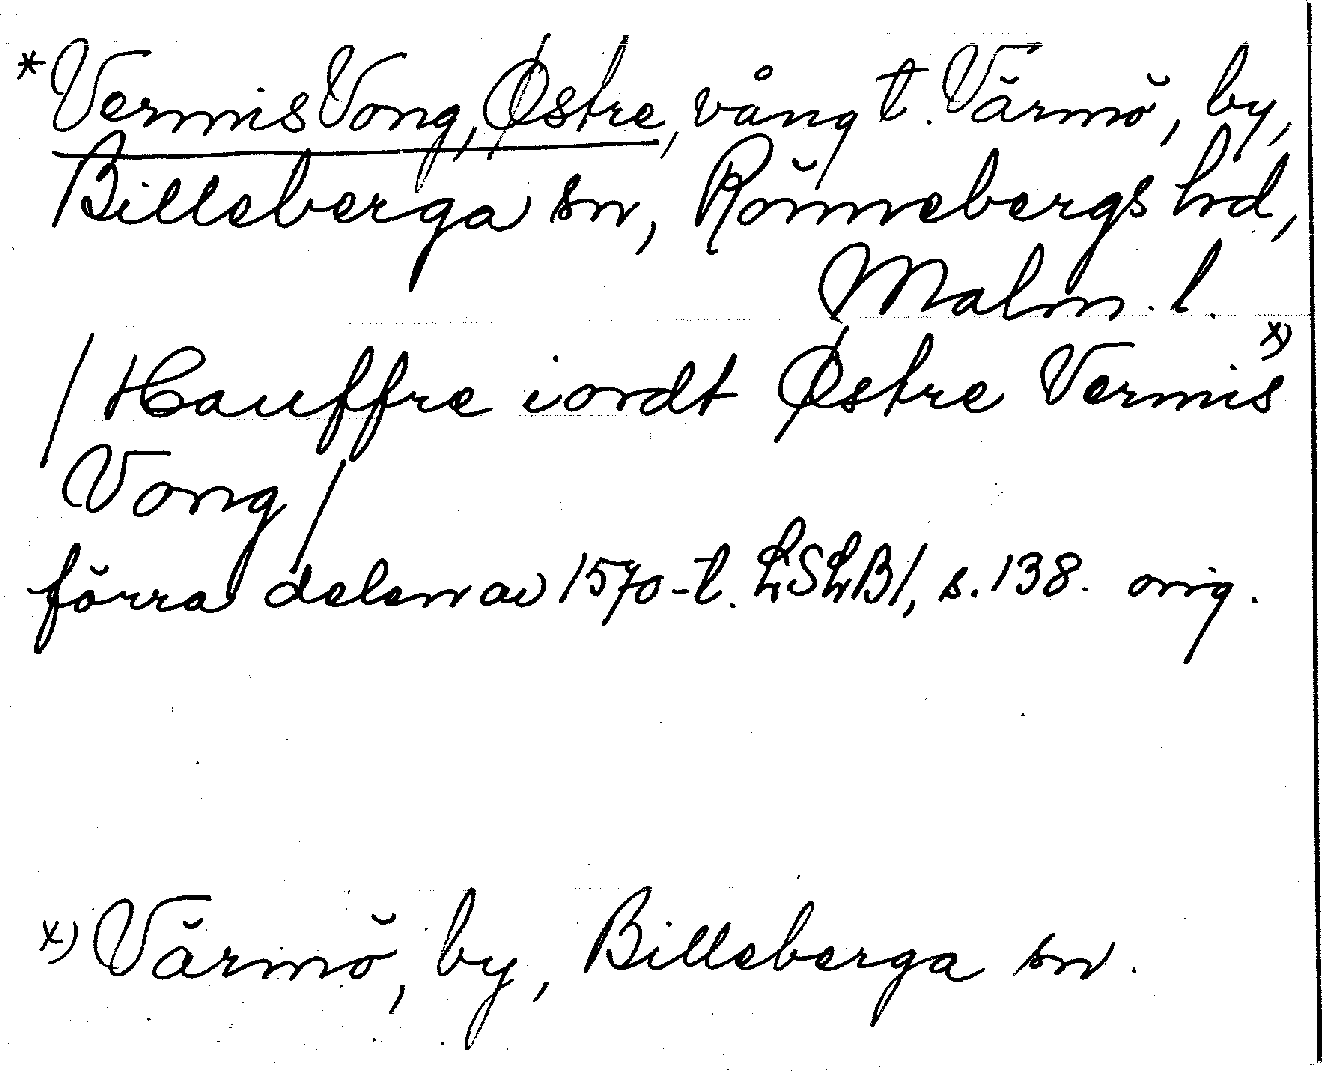 *Vermis Vong, Østre, vång t. Värmö, by,
Billeberga sn, Rönnebergs hd,
Malm. l.
/Hauffre iordt Østre Vermis x)
Vong/
förra delen av 1570-t. LSLB1, s. 138. orig.
x) Värmö, by, Billeberga sn.